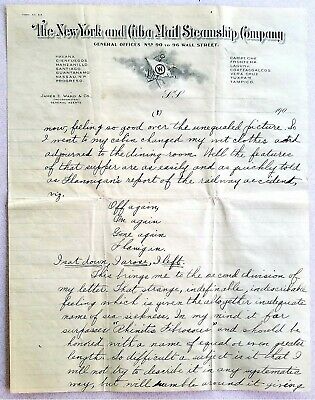 The New York and Cuba Mail Steamship Company
GENERAL OFFICES Nos 90 TO 96 WALL STREET.
HAVANA
CIENFUEGOS
MANZANILLO
SANTIAGO
GUANTANAMO
NASSAU, N.P.
PROGRESO
CAMPECHE
FRONTERA
LAGUNA
COATZACOALCOS
VERA CRUZ
TUXPAM
TAMPICO
JAMES E. WARD & CO.
GENERAL AGENTS
S.S.
190
(8)
now, feeling so good over the unequaled picture. So
I went to my cabin changed my wet clothes and
adjourned to the dining-room. Well the features
of that supper are as easily and as quickly told
as Flannigan's report of the railway accident,
viz.
Off again,
On again
Gone again
Flanigan.
I sat down, I arose, I left.
This brings me to the second division of
my letter. That strange, indefinable, indescribable
feeling which is given the altogether inadequate
name of sea sickness. In my mind it far
surpasses "Rhinitis Fibrosous" and should be
honored with a name of equal or even greater
length. So difficult a subject is it that I
will not try to describe it in any systematic
way, but will ramble around it giving